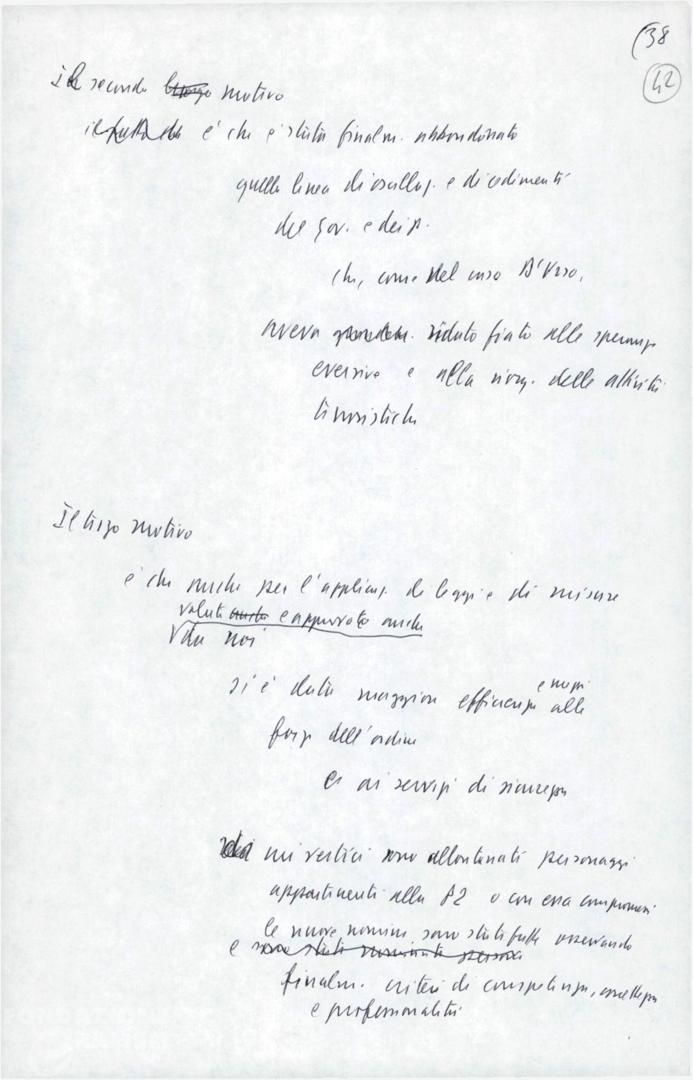 (38
42
Il secondo luogo motivo
è che è stata finalm. abbandonata
quella linea di oscillaz. e di cedimenti
del Gov. e dei p.
che, come nel caso D'Urso,
aveva ridato fiato alle speranze
eversive e alla ripresa delle attività
terroristiche
Il terzo motivo
è che anche per l'applicaz. di leggi e di misure
valutate e approvate anche
da noi
si è data maggiore efficienza e mezzi alle
forze dell'ordine
e ai servizi di sicurezza
dai vertici sono allontanati personaggi
appartenenti alla P2 o con essa compromessi
le nuove nomine sono state fatte osservando
e sono stati nominati persone
finalm. criteri di competenza, correttezza
e professionalità